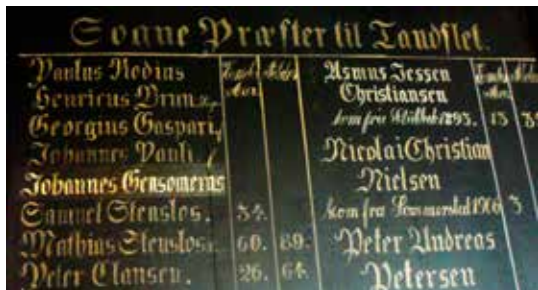 Sogne Præster til Tandslet.
Paulus Nodius
Henricus Brun
Georgius Gaspari,
Johannes Pauli
Johannes Gensomerus
Samuel Stenslos. 34.
Mathius Stenslos. 60. 89.
Peter Clausen. 26. 64.
Asmus Jessen
Christiansen
kom fra 1893. 13
Nicolai Christian
Nielsen
kom fra Sommersted 1906 3
Peter Andreas
Petersen